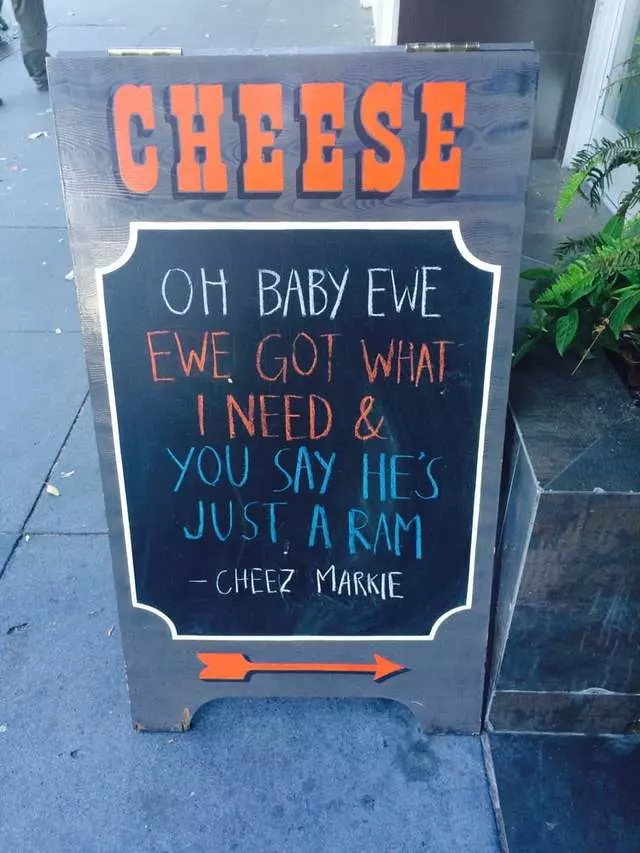 CHEESE
OH BABY EWE
EWE GOT WHAT
I NEED &
YOU SAY HE'S
JUST A RAM
- CHEEZ MARKIE